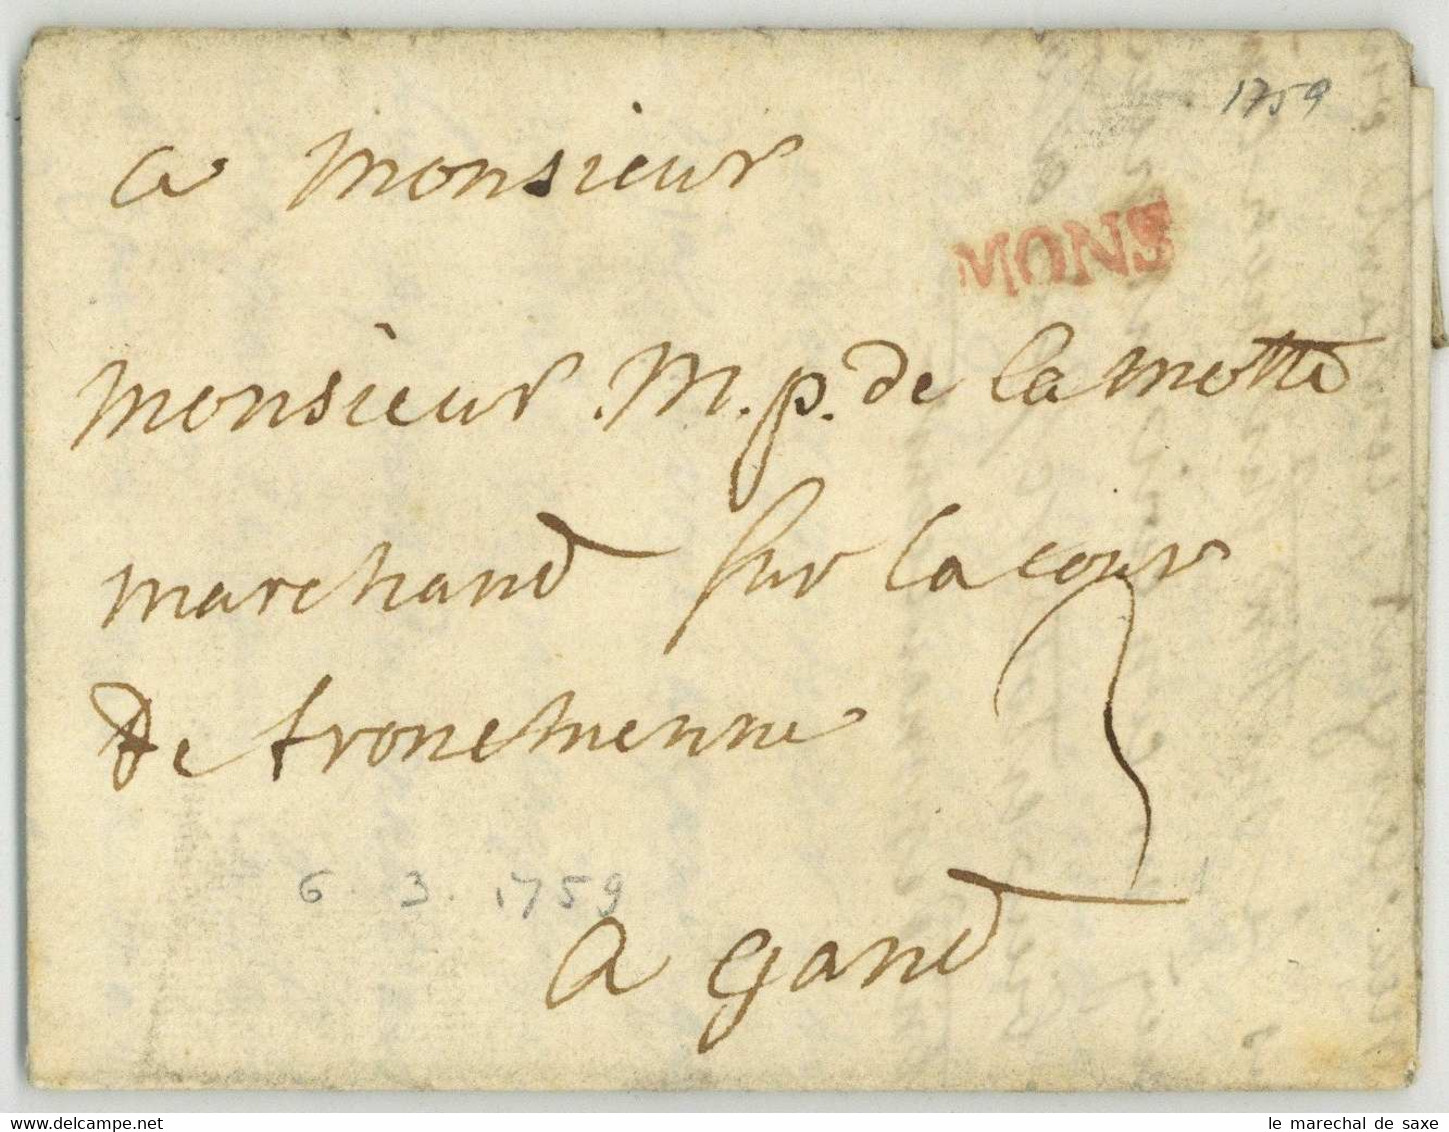 1759
a monsieur
MONS
monsieur M. p. de la motte
marchand sur la cour
de tronchienne
3
6 3. 1759
a gand
le marechal de saxe